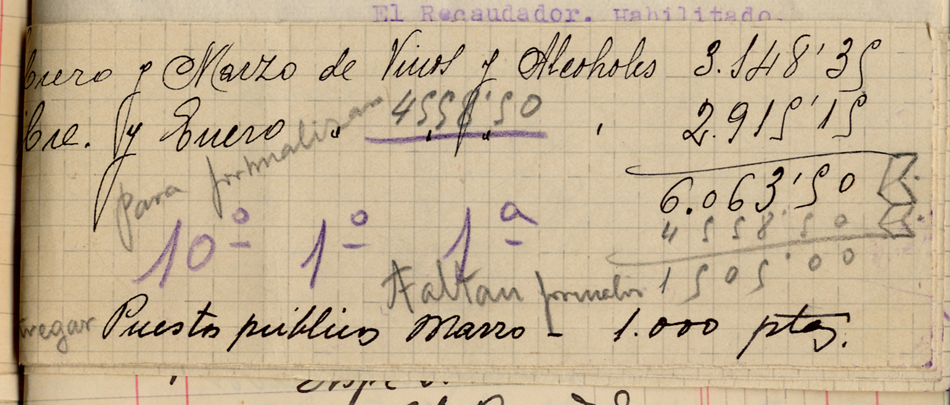 El Recaudador. Habilitado.
Enero y Marzo de Vinos y Alcoholes 3.148'35
bre. y Enero " 4558'50 " , 2.915'15
para formalizar
6.063'50
4558'50
10º 1º 1ª
Faltan formalizar 1505'00
Puestos público Marzo - 1.000 ptas.